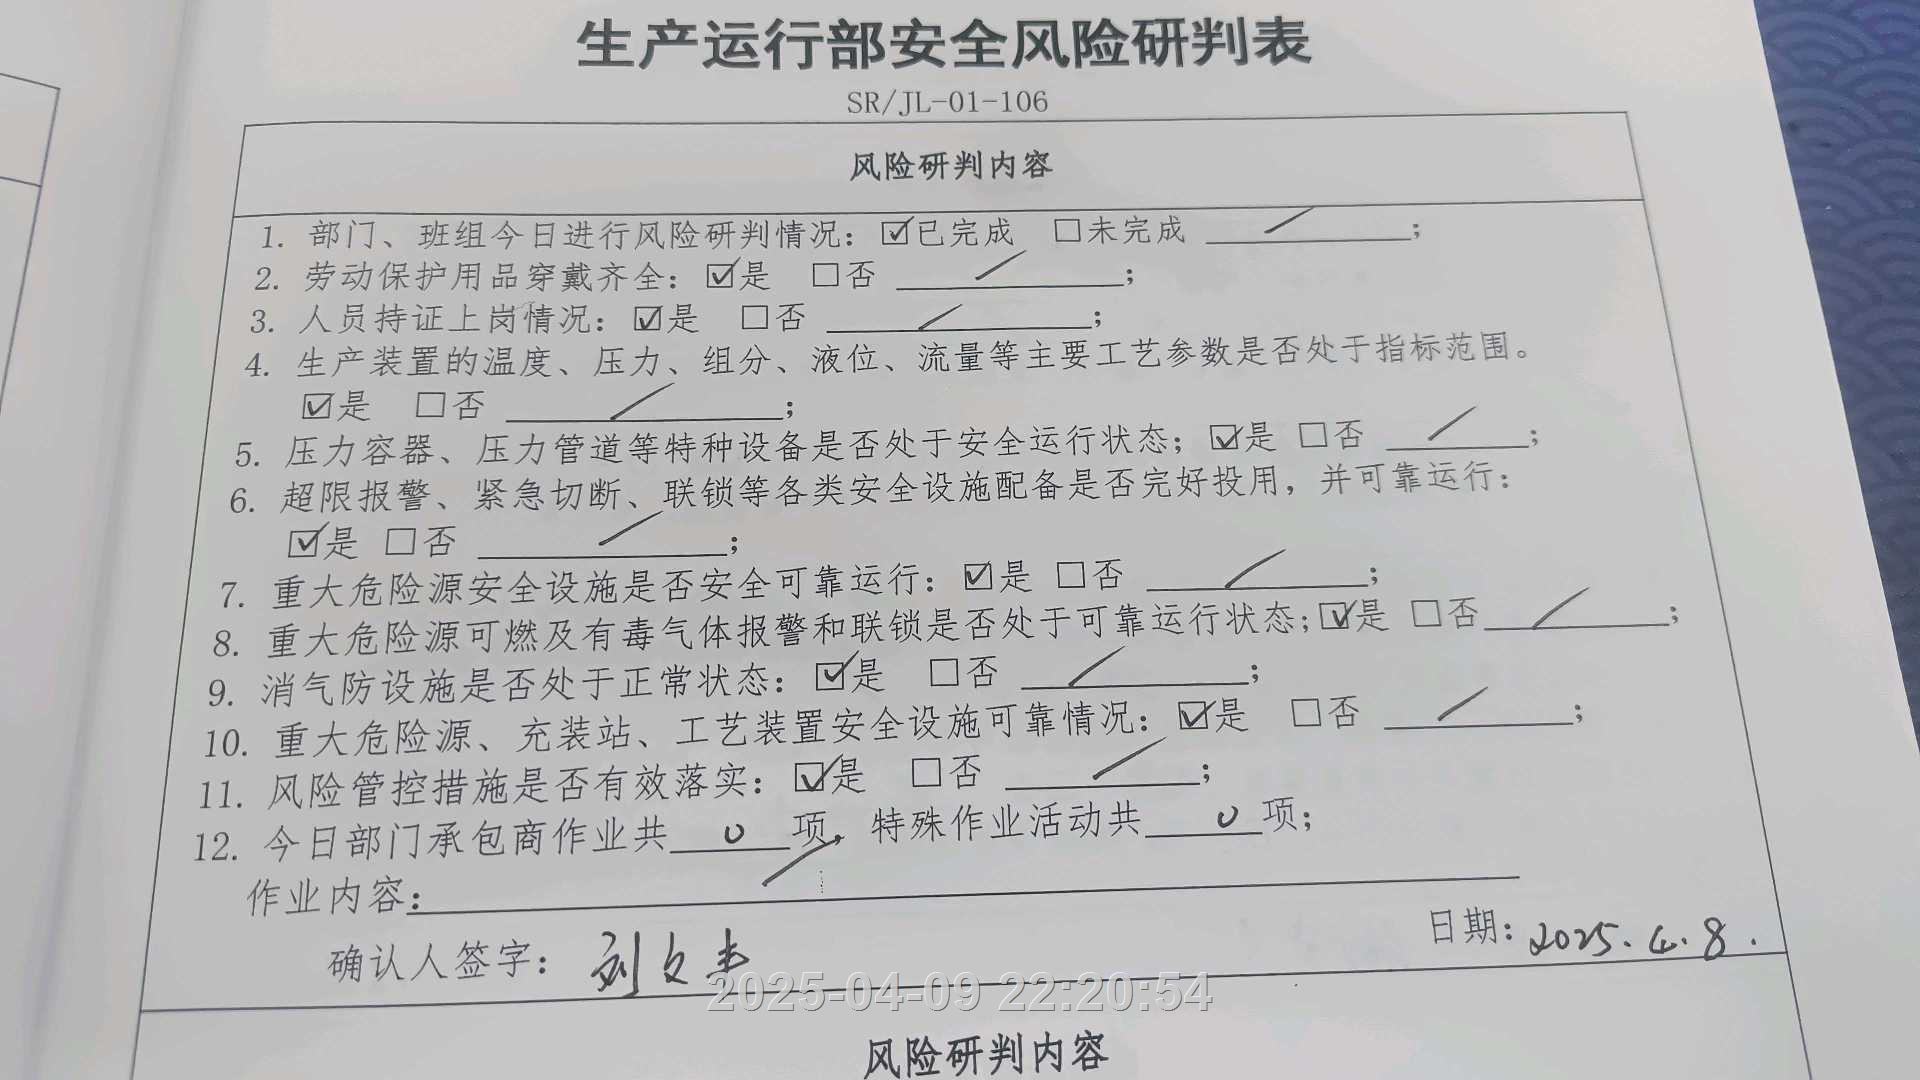 生产运行部安全风险研判表
SR/JL-01-106
风险研判内容
1. 部门、班组今日进行风险研判情况：☑已完成 ☐未完成 /；
2. 劳动保护用品穿戴齐全：☑是 ☐否 /；
3. 人员持证上岗情况：☑是 ☐否 /；
4. 生产装置的温度、压力、组分、液位、流量等主要工艺参数是否处于指标范围。
☑是 ☐否 /；
5. 压力容器、压力管道等特种设备是否处于安全运行状态；☑是 ☐否 /；
6. 超限报警、紧急切断、联锁等各类安全设施配备是否完好投用，并可靠运行：
☑是 ☐否 /；
7. 重大危险源安全设施是否安全可靠运行：☑是 ☐否 /；
8. 重大危险源可燃及有毒气体报警和联锁是否处于可靠运行状态；☑是 ☐否 /；
9. 消气防设施是否处于正常状态：☑是 ☐否 /；
10. 重大危险源、充装站、工艺装置安全设施可靠情况：☑是 ☐否 /；
11. 风险管控措施是否有效落实：☑是 ☐否 /；
12. 今日部门承包商作业共 0 项，特殊作业活动共 0 项；
作业内容： /
确认人签字：刘文丰 日期：2025.4.8.
2025-04-09 22:20:54
风险研判内容